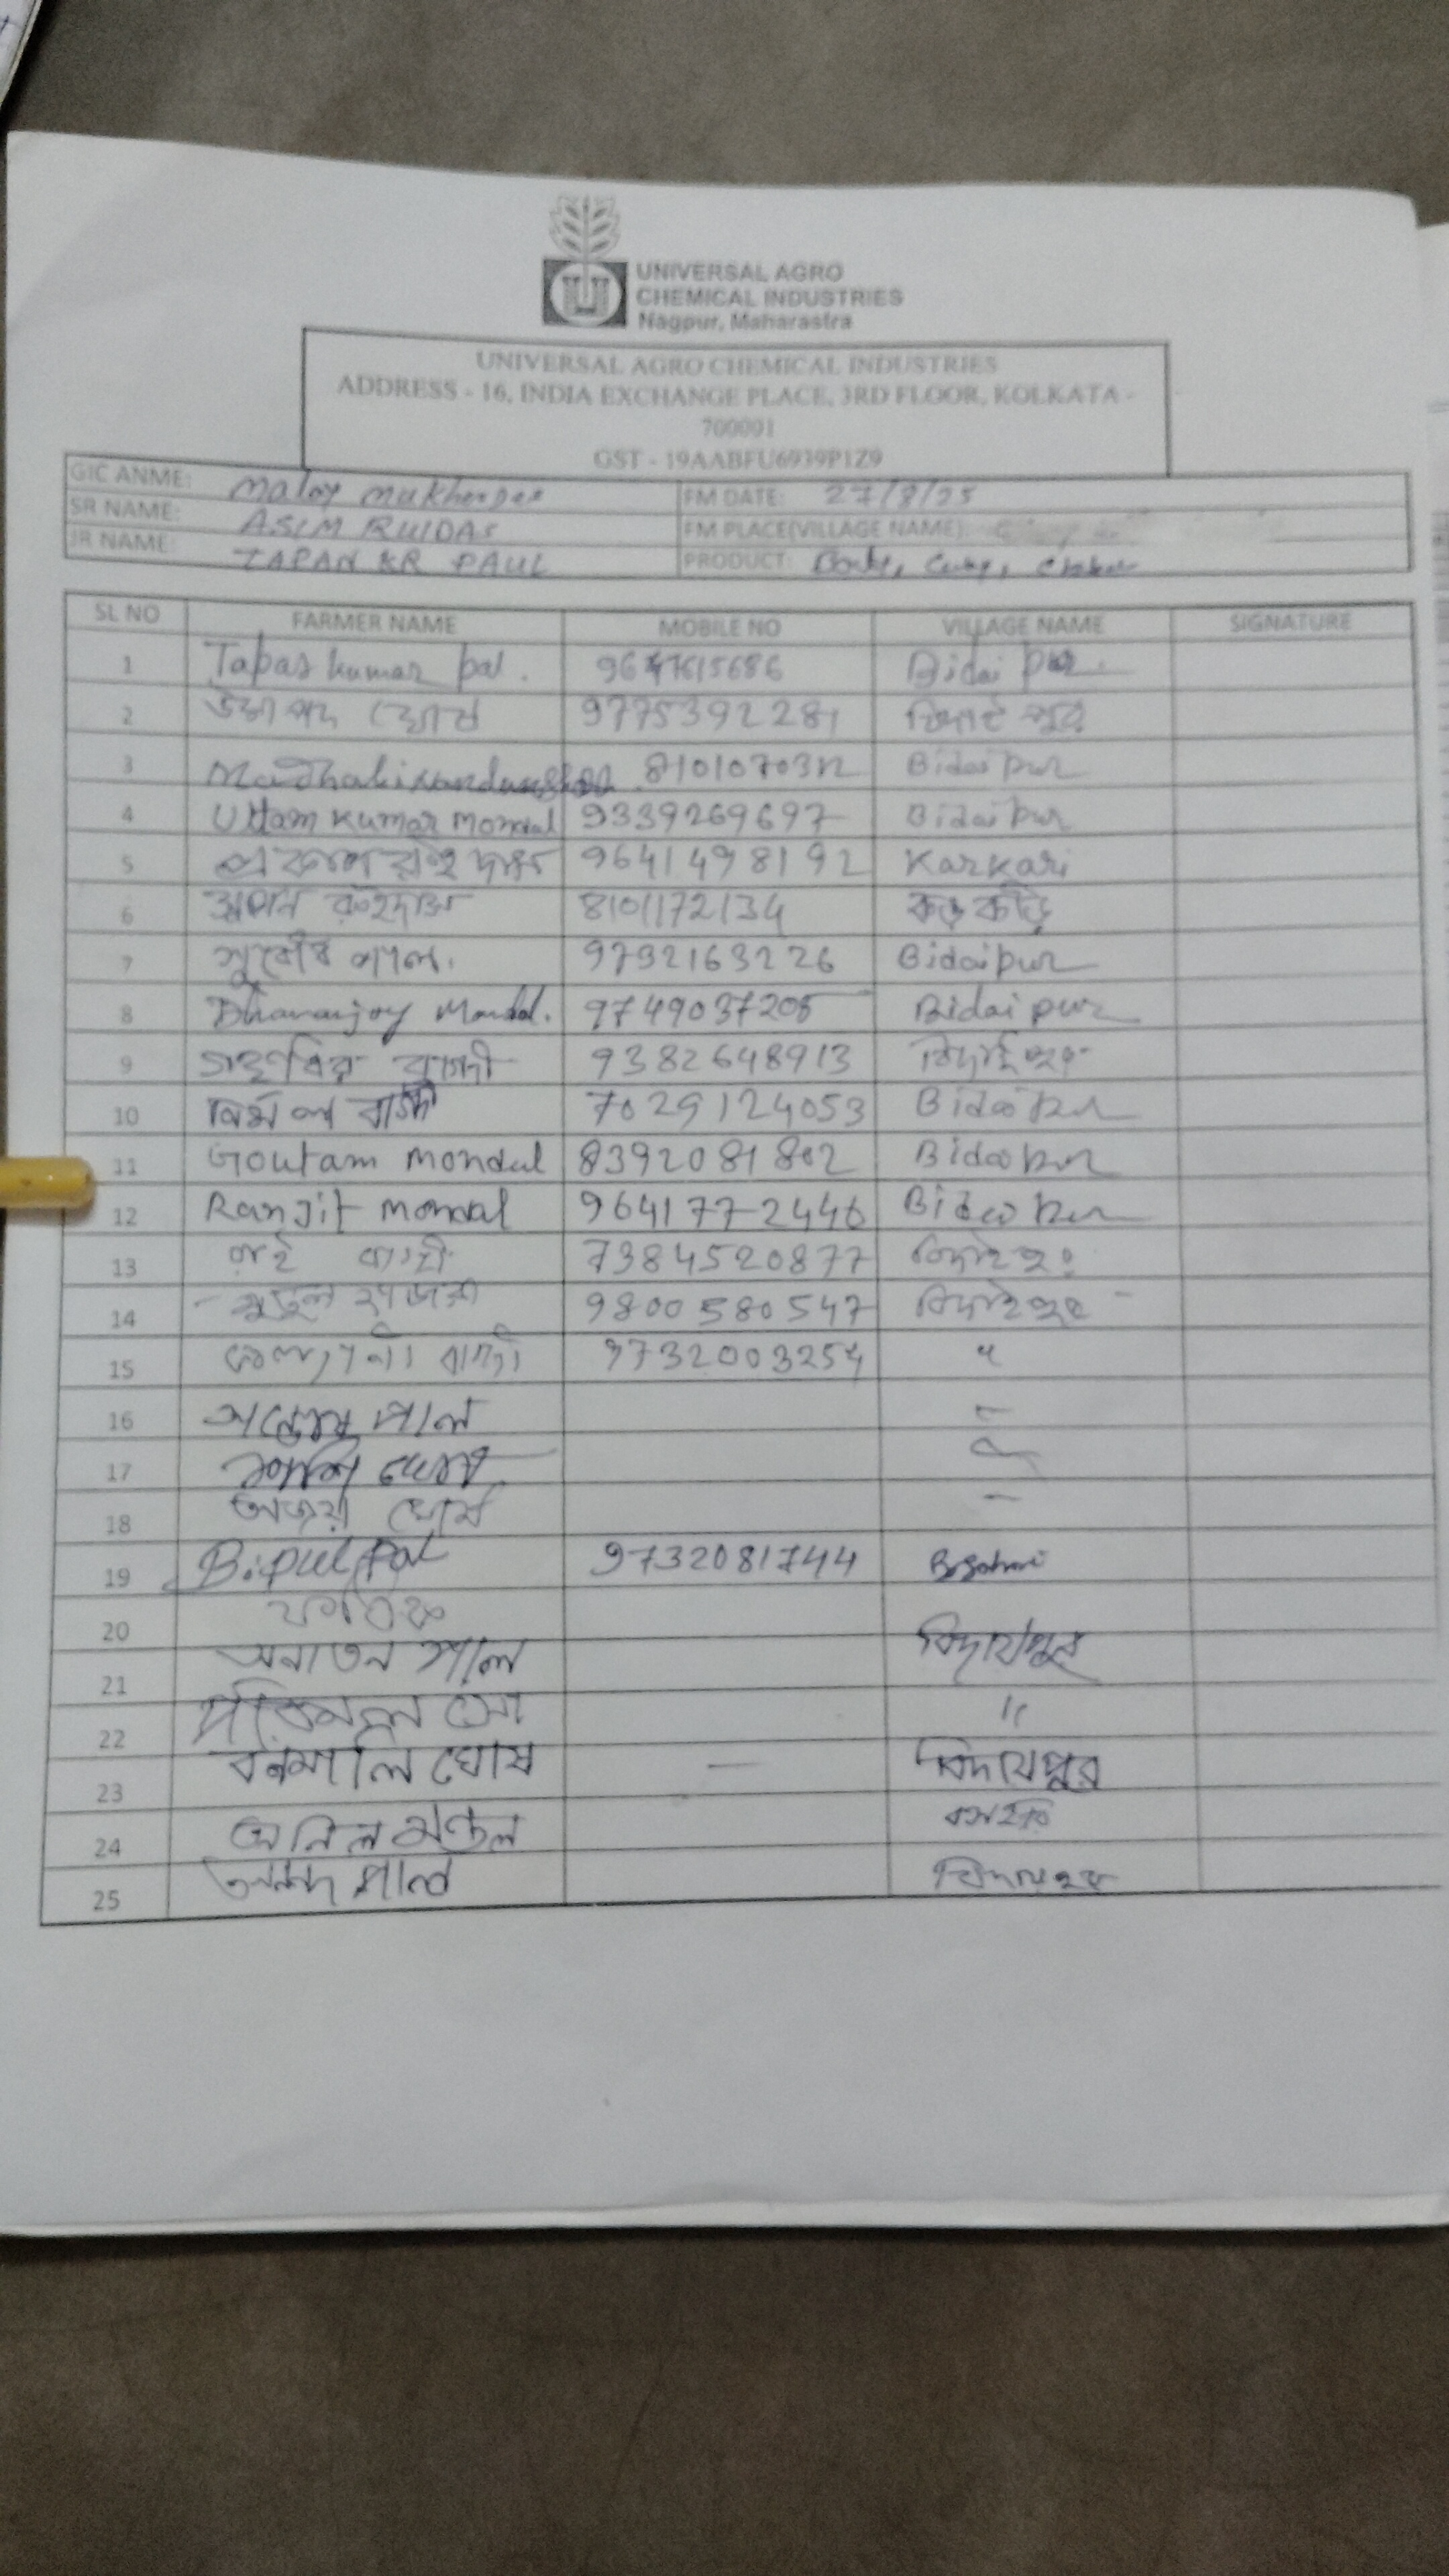 UNIVERSAL AGRO
CHEMICAL INDUSTRIES
Nagpur, Maharastra
UNIVERSAL AGRO CHEMICAL INDUSTRIES
ADDRESS - 16, INDIA EXCHANGE PLACE, 3RD FLOOR, KOLKATA -
700001
GST - 19AABFU6939P1Z9
GIC ANME: Maloy Mukherjee FM DATE: 27/8/25
SR NAME: ASIM RUIDAS FM PLACE(VILLAGE NAME):
JR NAME: TAPAN KR PAUL PRODUCT:
SL NO FARMER NAME MOBILE NO VILLAGE NAME SIGNATURE
1 Tapas kumar pal. Bidaipur.
2 ঘোষ 9775392281 বিদাইপুর
3 Bidaipur
4 Uttam Kumar Mondal 9339269697 Bidaipur
5 9641498192 Karkari
6 স্বপন রুইদাস 8101172134
7 সুবোধ পাল. 9732163226 Bidaipur
8 Dhananjoy Mondal. 9749037205 Bidaipur
9 বাগ্দী 9382648913 বিদাইপুর
10 নির্মল বাগ্দী 7029124053 Bidaipur
11 Goutam Mondal 8392081802 Bidaipur
12 Ranjit Mondal 9641772446 Bidaipur
13 বাগ্দী 7384520877 বিদাইপুর
14 হাজরা 9800580547 বিদাইপুর
15 কল্যানী বাগ্দী 9732003254 "
16 সন্তোষ পাল
17 ঘোষ
18 অজয় ঘোষ
19 Bipul Pal 9732081744
20
21 সনাতন পাল বিদায়পুর
22 পরিমল "
23 বনমালি ঘোষ — বিদায়পুর
24 অনিল মণ্ডল
25 আনন্দ পাল বিদায়পুর